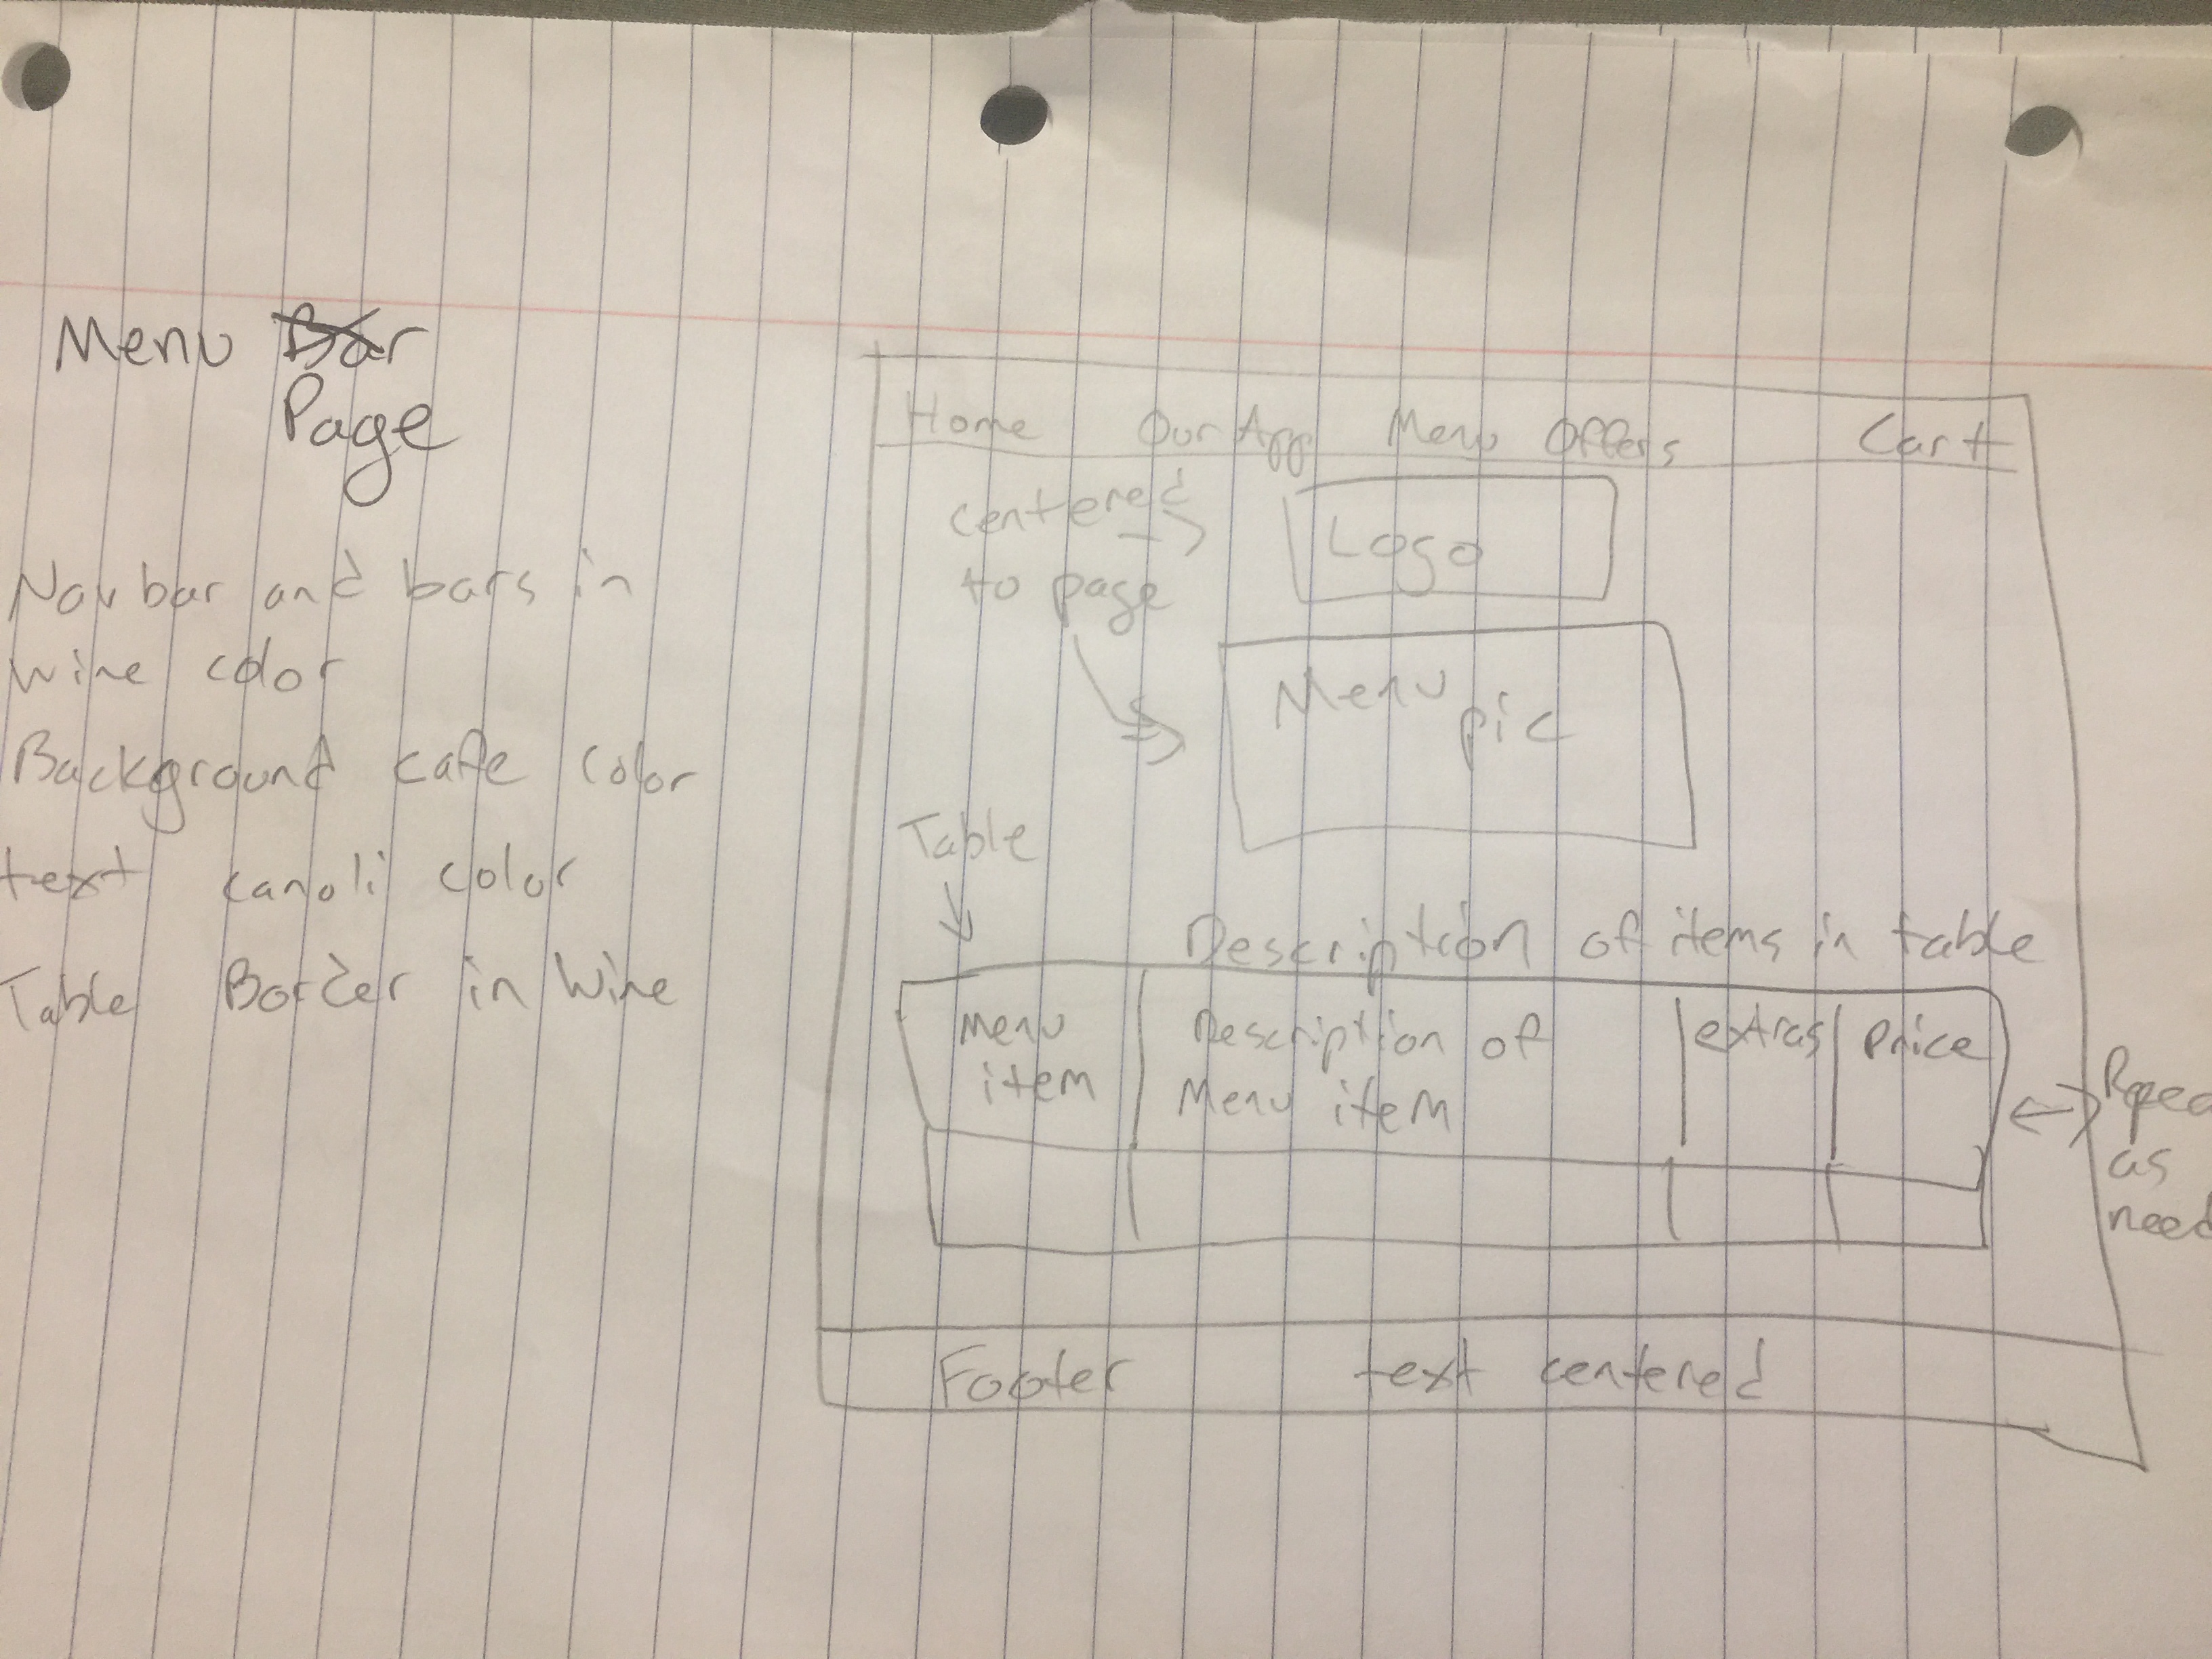 Menu Bar
Page
Nav bar and bars in
wine color
Background cafe color
text canoli color
Table Border in Wine
Home Our App Menu Offers Cart
centered
to page
Logo
Menu
pic
Table
Description of items in table
Menu
item
Description of
Menu item
extras
Price
as
need
Footer text centered